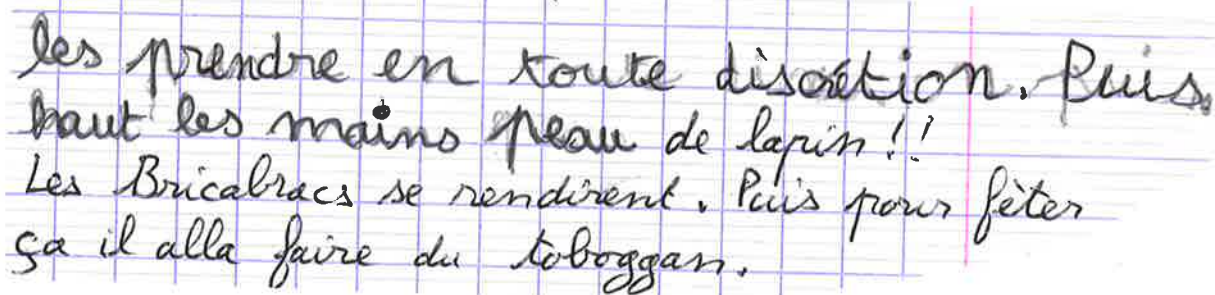 les prendre en toute discrétion. Puis
haut les mains peau de lapin !!
Les Bricabracs se rendirent. Puis pour fêter
ça il alla faire du toboggan.